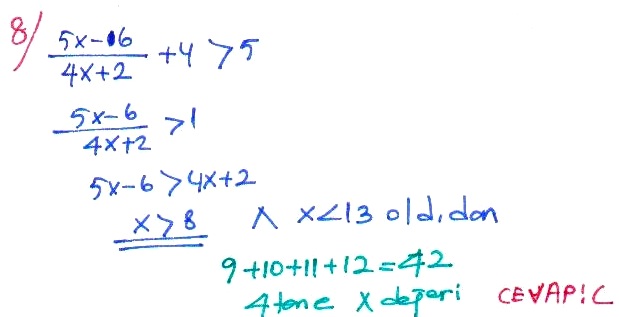 8/ (5x-6)/(4x+2) +4 >5
(5x-6)/(4x+2) >1
5x-6>4x+2
x>8 ∧ x<13 old.dan
9+10+11+12=42
4 tane x değeri CEVAP:C